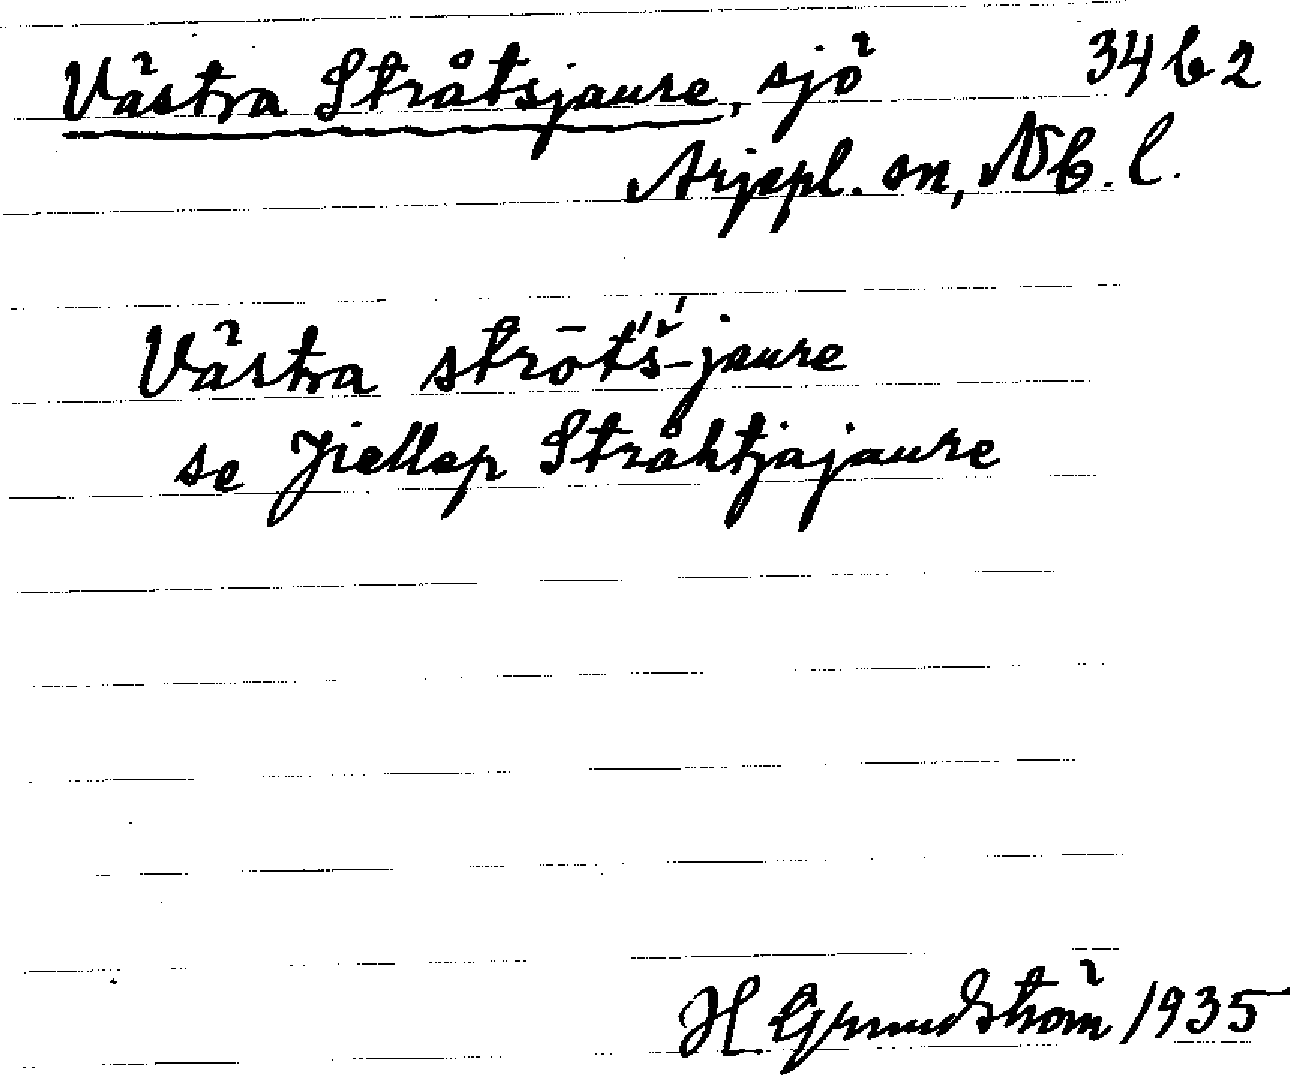 Västra Stråtsjaure, sjö 34 b 2
Arjepl. sn, Nb. l.
Västra strōt́š́-jaure
se Jiellep Stråktjajaure
H Grundström 1935